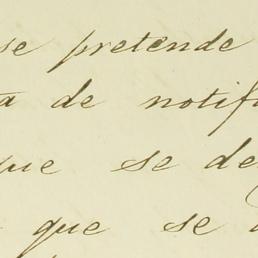 se pretende
a de notif
que se de
que se